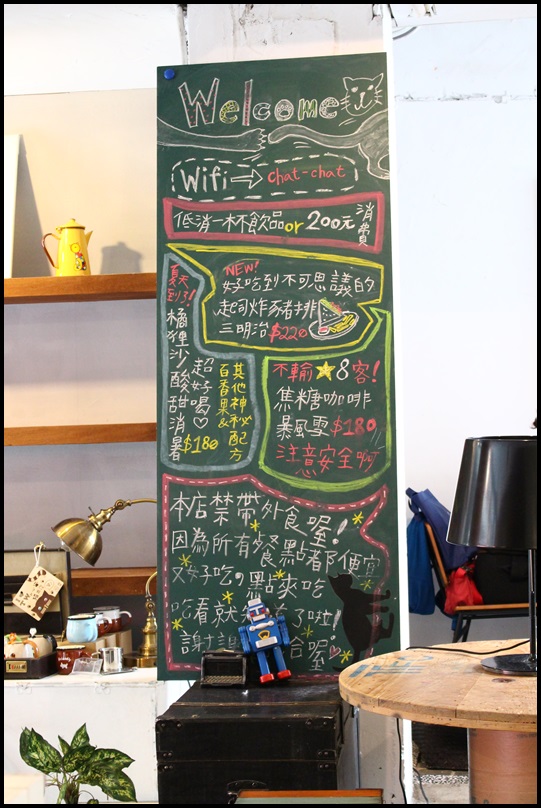 Welcome
Wifi → chat-chat
低消一杯飲品or 200元 消費
NEW!
好吃到不可思議的
起司炸豬排
三明治 $220
夏天到了!
橘狸沙
酸甜消暑 $180
超好喝♡
百香果&
其他神秘配方
不輸★8客!
焦糖咖啡
暴風雪$180
注意安全啊
本店禁帶外食喔!
因為所有餐點都便宜
又好吃,點來吃
吃看就
了啦!
謝
合喔♡